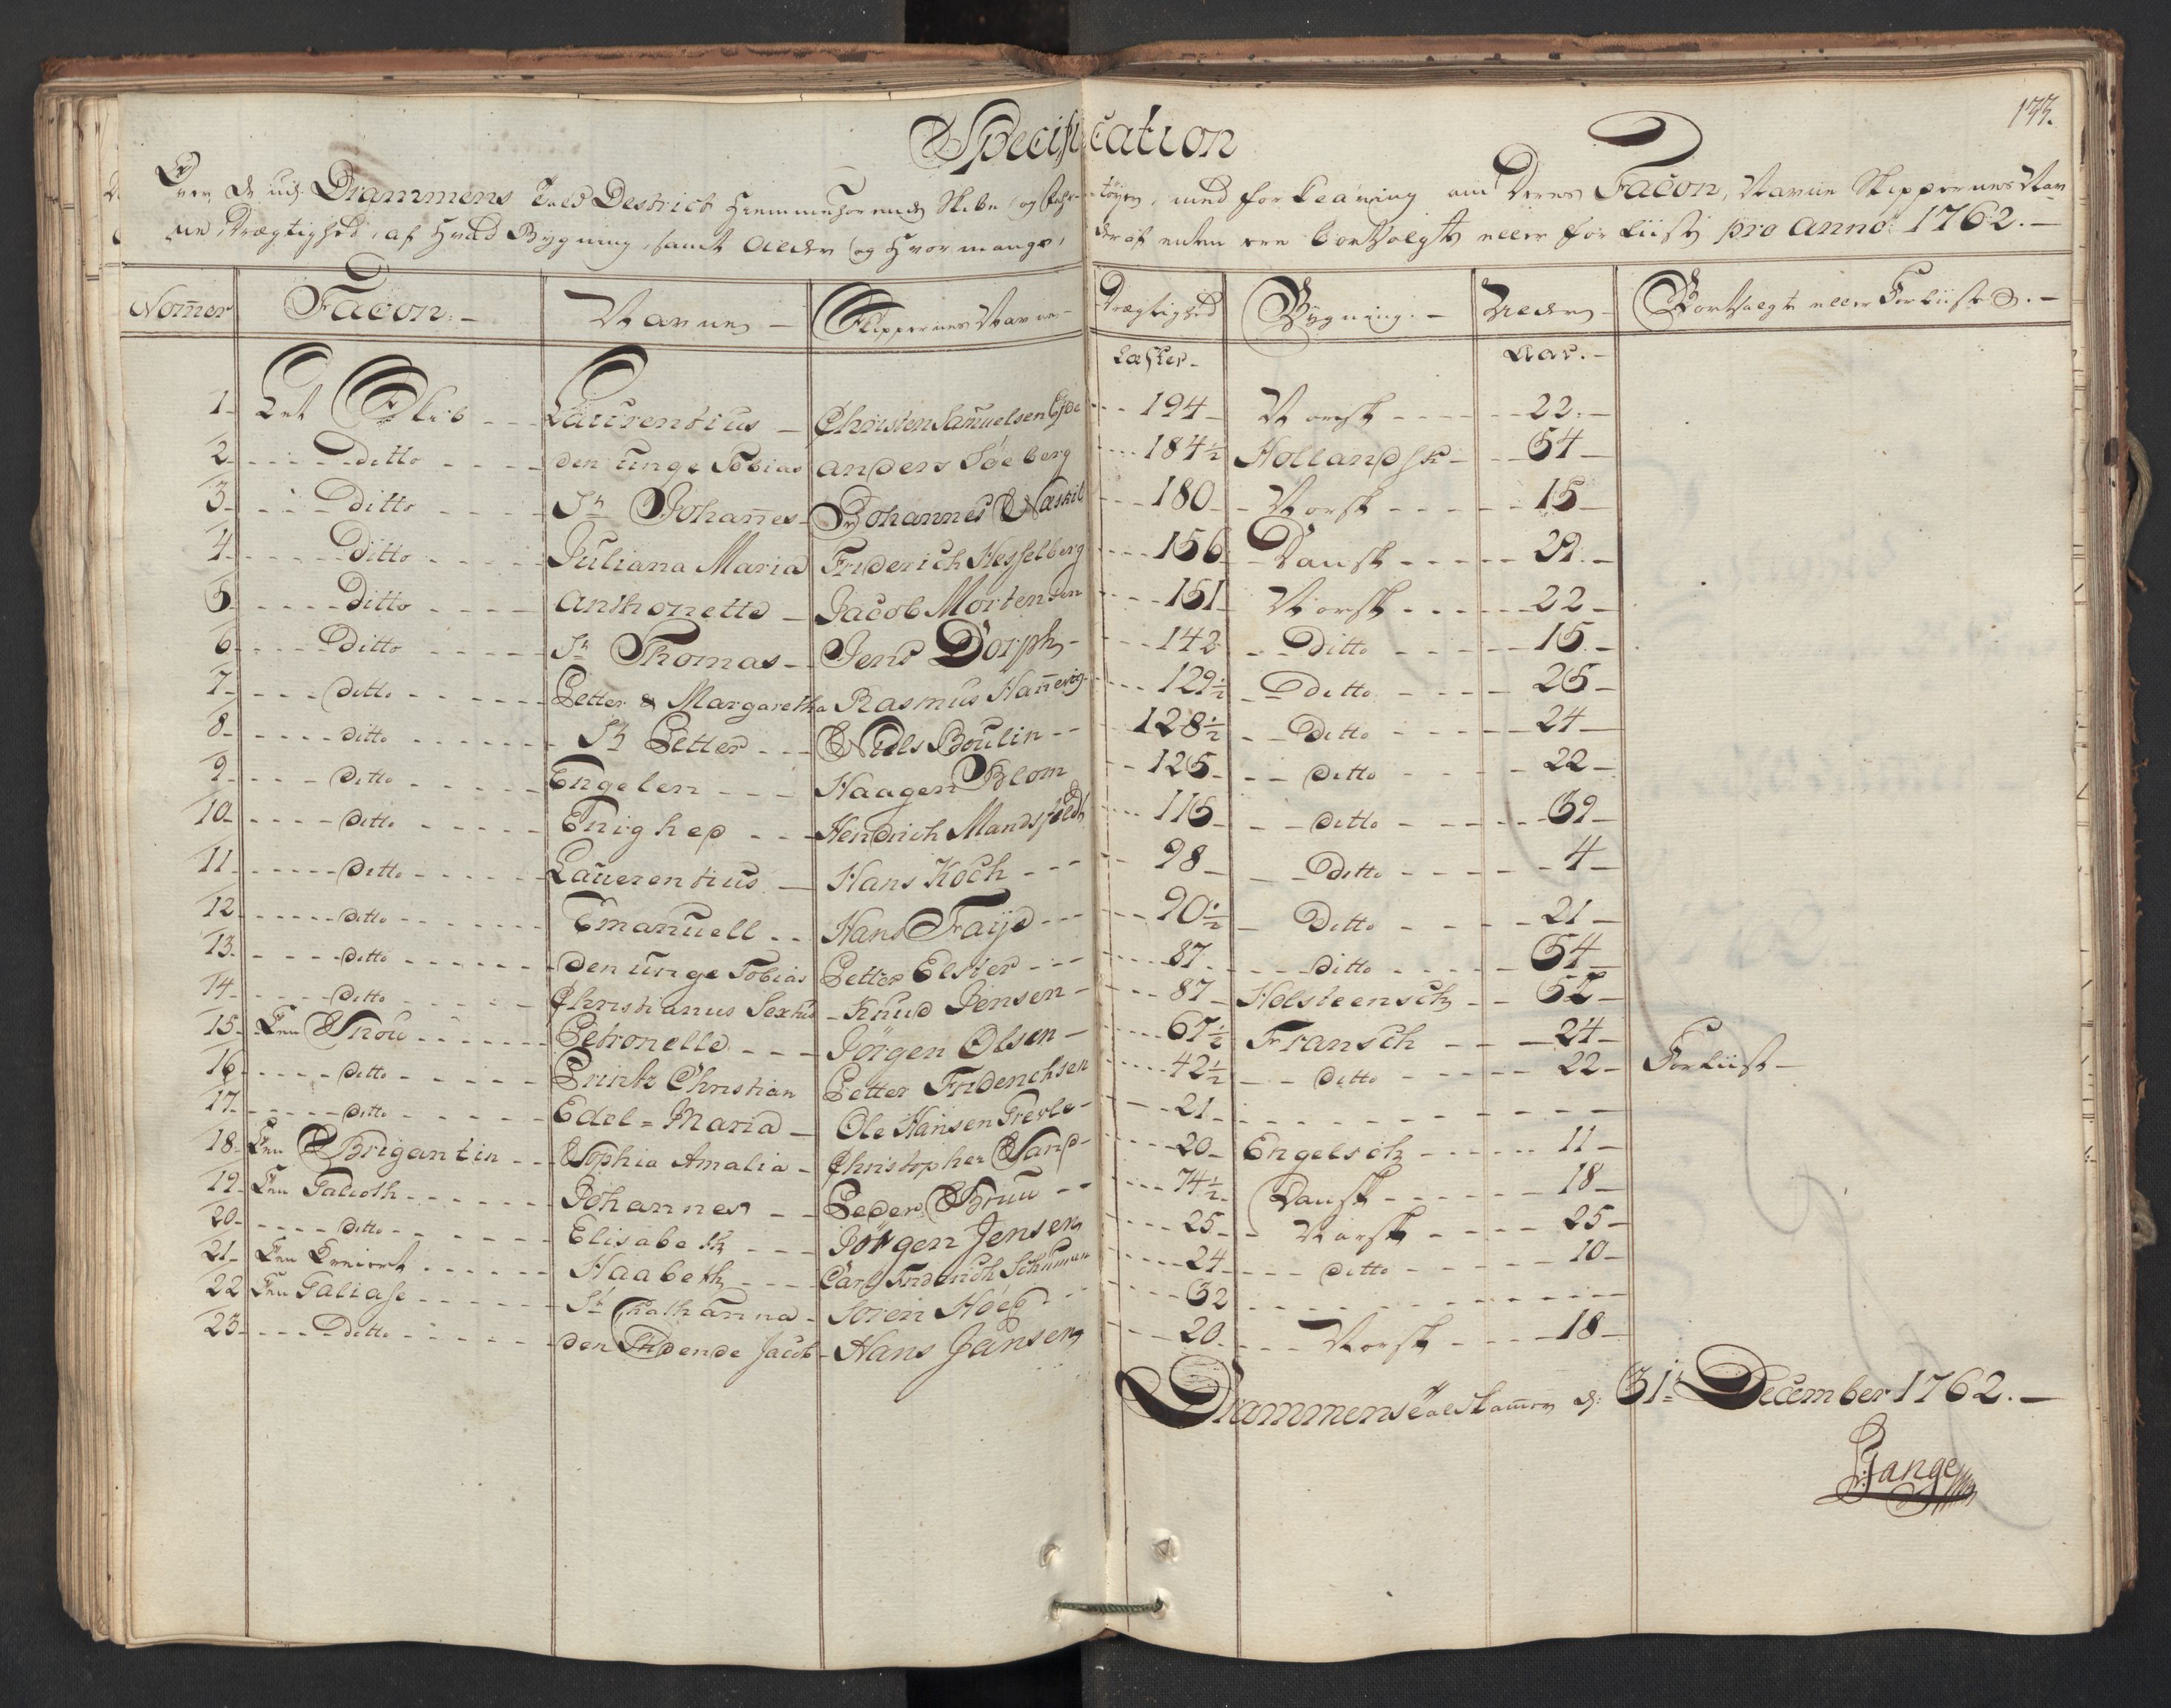 177.
Specification
Over de udj Drammens Told District Hiemmehørende Skibe og Fahrtøyer, med forklaring om Deres Facon, Navne Skippernes Nav
ne Drægtighed, af Hvad Bygning, samt Alder og Hvor mange, deraf enten ere bortsolgte eller forliiste pro Anno: 1762.—
Nomer Facon:— Navne — Skippernes Navne— Drægtighed Bygning.— Alder— Bortsolgte eller Forliiste &.—
Læster— Aar.—
1— Eet Skib Laurentius — Christen Samuelsen Eyde 194— Norsk 22.—
2— ditto den unge Tobias Anders Søeberg 184½ Hollandsk— 54—
3— Ditto St: Johañes— Johannes Næskil 180— Norsk 15—
4— Ditto Juliana Maria Friderich Hesselberg 156— Dansk 29.—
5— Ditto Anthonette — Jacob Mortensen 151— Norsk 22—
6— Ditto St: Thomas— Jens Dorph— 142 Ditto 15.—
7— ditto Petter & Margaretha Rasmus Hañevig— 129½ Ditto 25—
8— ditto St: Petter Niels Boulin 128½ Ditto 24—
9— ditto Engelen Haagen Blom 125— ditto 22—
10— ditto Enighed Hendrich Mandsfeldt 115— ditto 39—
11— ditto Lauerentius — Hans Koch 98— Ditto 4—
12 ditto Emanuell Hans Faye 90½ Ditto 21—
13— ditto den unge Tobias Petter Elster 87 ditto 54—
14— ditto Christianus Sextus Knud Jensen 87— Holsteensch 52—
15— Een Snou Petronelle Jörgen Olsen— 67½ Fransch 24—
16— ditto Printz Christian Petter Friderichsen 42½ ditto 22— Forliist—
17— ditto Edel=Maria — Ole Hansen Treyle— 21—
18— Een Brigantin Sophia Amalia— Christopher Sand— 20— Engelsch 11—
19— Een Galioth Johannes Peder Bruu 74½ Dansk 18—
20— ditto Elisabeth Jörgen Jensen 25— Norsk 25—
21— Een Kreiert Haabeth Carl Friderich Schuman 24— ditto 10—
22 Een Galiase St: Catharina— Sören Höeg 32
23— Ditto den Ridende Jacob— Hans Jansen 20— Norsk 18—
Drammens Toldkam̃er d: 31te December 1762.—
Gange